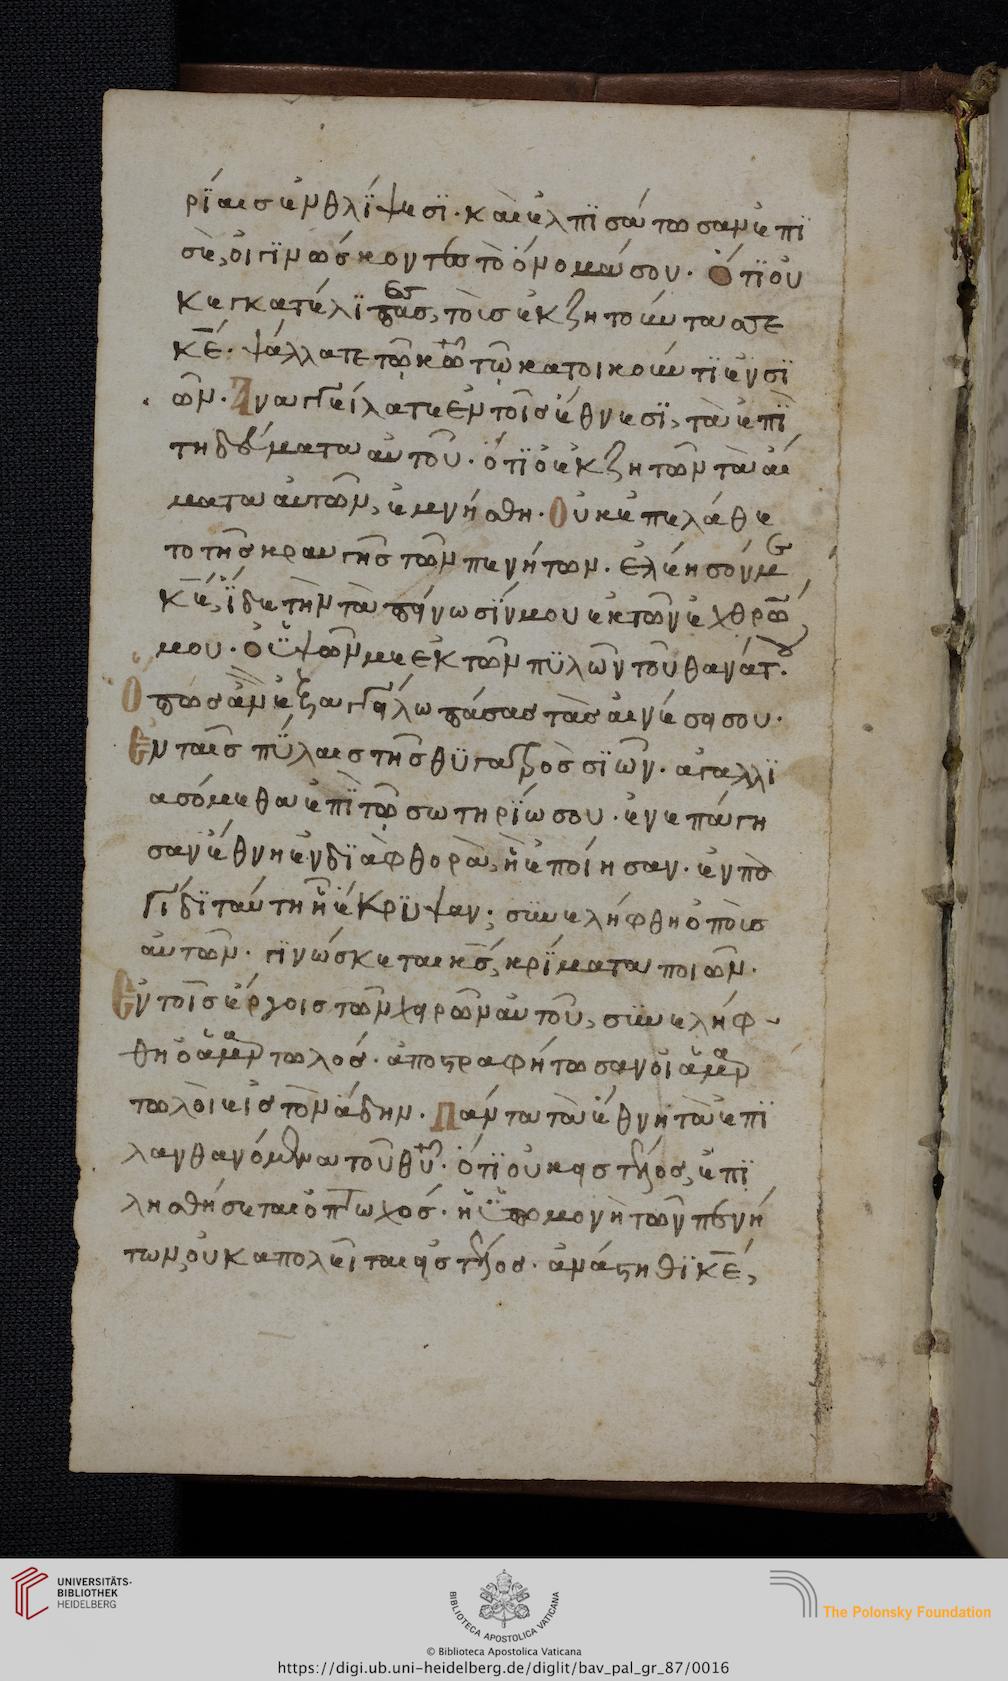 ρίαις ἐν θλίψεσι· καὶ ἐλπισάτωσαν ἐπὶ
σὲ, οἱ γινώσκοντες τὸ ὄνομά σου. Ὅτι οὐ
κ ἐγκατέλιπας, τοὺς ἐκζητοῦντάς σε
κ̅ε̅. ψάλλατε τῷ κ̅ω̅ τῷ κατοικοῦντι ἐν σι
ῶν. Ἀναγγείλατε ἐν τοῖς ἔθνεσι, τὰ ἐπι
τηδεύματα αὐτοῦ. ὅτι ὁ ἐκζητῶν τὰ αἵ
ματα αὐτῶν, ἐμνήσθη. Οὐκ ἐπελάθε
το τῆς κραυγῆς τῶν πενήτων. ἐλέησόν με
κ̅ε̅, ἴδε τὴν ταπείνωσίν μου ἐκ τῶν ἐχθρῶ
μου. ὁ ὑψῶν με ἐκ τῶν πυλῶν τοῦ θανάτου.
Ὅπως ἂν ἐξαγγείλω πάσας τὰς αἰνέσεις σου.
Ἐν ταῖς πύλαις τῆς θυγατρὸς σιών. ἀγαλλι
ασόμεθα ἐπὶ τῷ σωτηρίω σου. ἐνεπάγη
σαν ἔθνη ἐν διαφθορᾷ, ἧ ἐποίησαν. ἐν πα
γίδι ταύτη ἧ ἔκρυψαν, συνελήφθη ὁ ποὺς
αὐτῶν. γινώσκεται κ̅ς̅, κρίματα ποιῶν.
Ἐν τοῖς ἔργοις τῶν χειρῶν αὐτοῦ, συνελήφ
θη ὁ ἁμαρτωλός. ἀποστραφήτωσαν οἱ ἁμαρ
τωλοὶ εἰς τὸν ἅδην. Πάντα τὰ ἔθνη τὰ ἐπι
λανθανόμενα τοῦ θ̅υ̅. ὅτι οὐκ εἰς τέλος, ἐπι
λησθήσεται ὁ πτωχός. ἡ ὑπομονὴ τῶν πενή
των, οὐκ ἀπολεῖται εἰς τέλος. ἀνάστηθι κ̅ε̅,
UNIVERSITÄTS-
BIBLIOTHEK
HEIDELBERG
BIBLIOTECA APOSTOLICA VATICANA
The Polonsky Foundation
© Biblioteca Apostolica Vaticana
https://digi.ub.uni-heidelberg.de/diglit/bav_pal_gr_87/0016